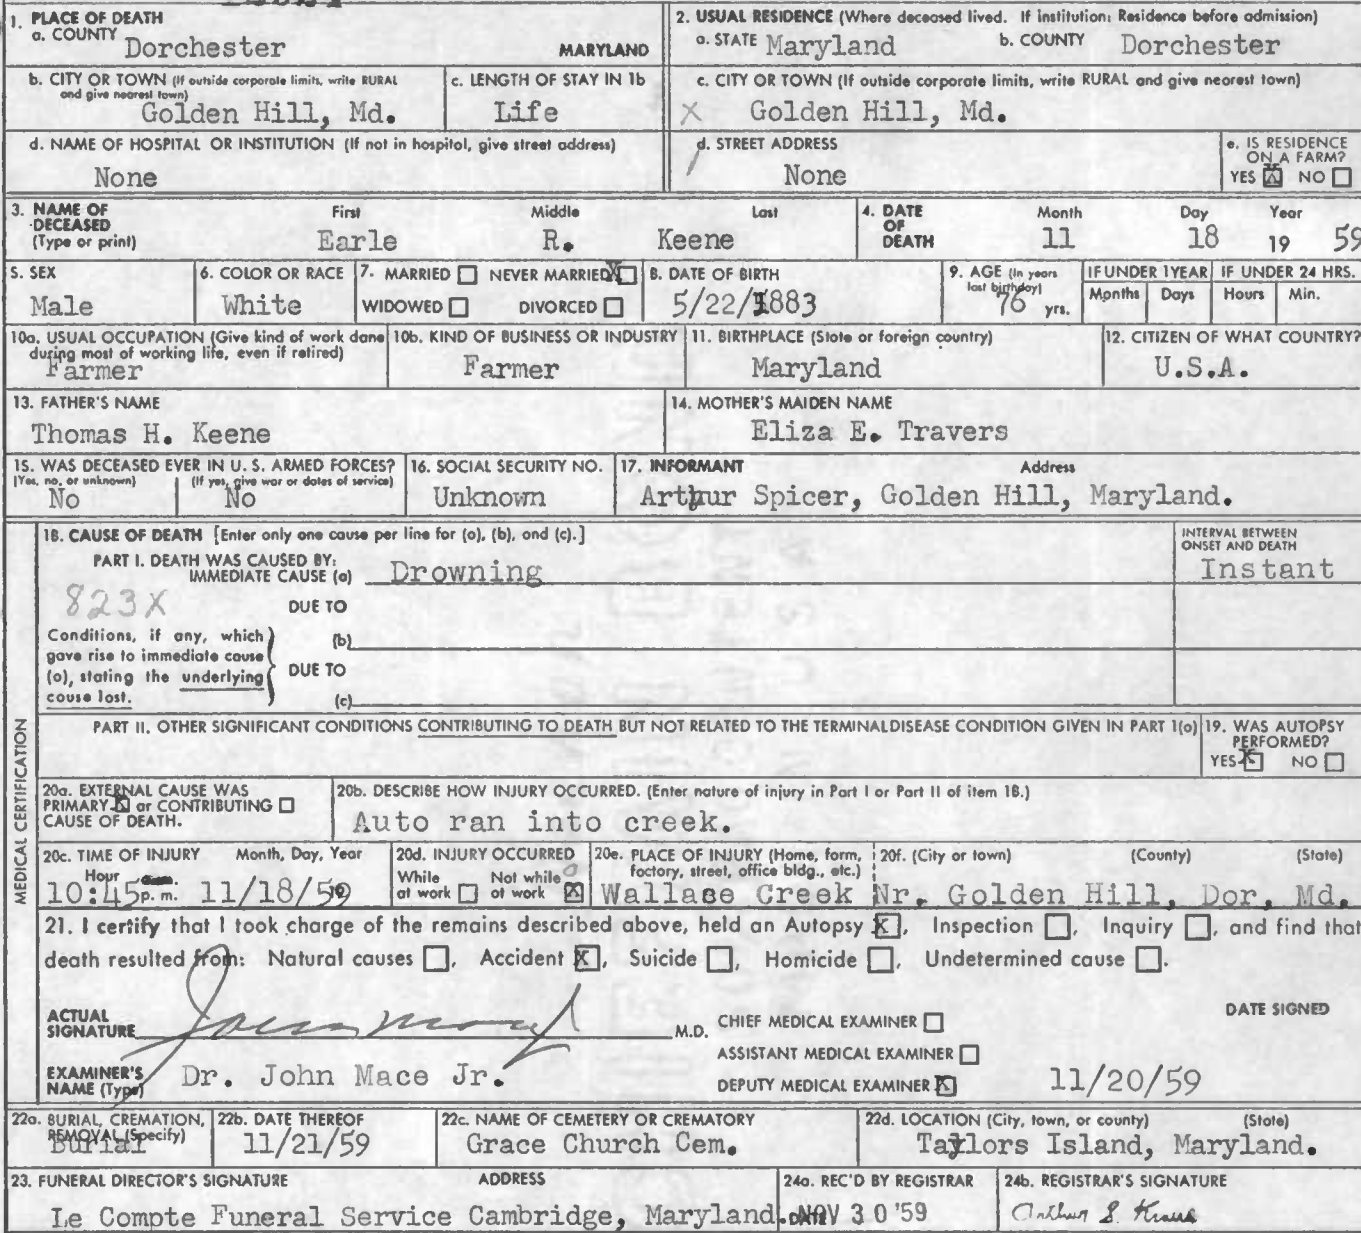 1. PLACE OF DEATH
a. COUNTY Dorchester MARYLAND
2. USUAL RESIDENCE (Where deceased lived. If institution: Residence before admission)
a. STATE Maryland b. COUNTY Dorchester
b. CITY OR TOWN (If outside corporate limits, write RURAL and give nearest town) Golden Hill, Md.
c. LENGTH OF STAY IN 1b Life
c. CITY OR TOWN (If outside corporate limits, write RURAL and give nearest town)
X Golden Hill, Md.
d. NAME OF HOSPITAL OR INSTITUTION (If not in hospital, give street address)
None
d. STREET ADDRESS
None
e. IS RESIDENCE ON A FARM?
YES X NO
3. NAME OF DECEASED (Type or print) First Middle Last
Earle R. Keene
4. DATE OF DEATH Month Day Year
11 18 19 59
5. SEX
Male
6. COLOR OR RACE
White
7. MARRIED NEVER MARRIED X
WIDOWED DIVORCED
8. DATE OF BIRTH
5/22/1883
9. AGE (In years last birthday) 76 yrs.
IF UNDER 1 YEAR Months Days
IF UNDER 24 HRS. Hours Min.
10a. USUAL OCCUPATION (Give kind of work done during most of working life, even if retired)
Farmer
10b. KIND OF BUSINESS OR INDUSTRY
Farmer
11. BIRTHPLACE (State or foreign country)
Maryland
12. CITIZEN OF WHAT COUNTRY?
U.S.A.
13. FATHER'S NAME
Thomas H. Keene
14. MOTHER'S MAIDEN NAME
Eliza E. Travers
15. WAS DECEASED EVER IN U. S. ARMED FORCES?
(Yes, no, or unknown) (If yes, give war or dates of service)
No No
16. SOCIAL SECURITY NO.
Unknown
17. INFORMANT Address
Arthur Spicer, Golden Hill, Maryland.
MEDICAL CERTIFICATION
18. CAUSE OF DEATH [Enter only one cause per line for (a), (b), and (c).]
INTERVAL BETWEEN ONSET AND DEATH
PART I. DEATH WAS CAUSED BY:
IMMEDIATE CAUSE (a) Drowning Instant
823X DUE TO
Conditions, if any, which gave rise to immediate cause (a), stating the underlying cause last.
(b)
DUE TO
(c)
PART II. OTHER SIGNIFICANT CONDITIONS CONTRIBUTING TO DEATH BUT NOT RELATED TO THE TERMINAL DISEASE CONDITION GIVEN IN PART I(a)
19. WAS AUTOPSY PERFORMED?
YES X NO
20a. EXTERNAL CAUSE WAS PRIMARY X or CONTRIBUTING CAUSE OF DEATH.
20b. DESCRIBE HOW INJURY OCCURRED. (Enter nature of injury in Part I or Part II of item 18.)
Auto ran into creek.
20c. TIME OF INJURY Month, Day, Year
Hour 10:45 p. m. 11/18/59
20d. INJURY OCCURRED
While at work Not while at work X
20e. PLACE OF INJURY (Home, farm, factory, street, office bldg., etc.)
Wallace Creek
20f. (City or town) (County) (State)
Nr. Golden Hill, Dor, Md.
21. I certify that I took charge of the remains described above, held an Autopsy X, Inspection , Inquiry , and find that
death resulted from: Natural causes , Accident X, Suicide , Homicide , Undetermined cause .
ACTUAL SIGNATURE John Mace Jr M.D.
CHIEF MEDICAL EXAMINER
DATE SIGNED
ASSISTANT MEDICAL EXAMINER
EXAMINER'S NAME (Type) Dr. John Mace Jr.
DEPUTY MEDICAL EXAMINER X 11/20/59
22a. BURIAL, CREMATION, REMOVAL (Specify)
Burial
22b. DATE THEREOF
11/21/59
22c. NAME OF CEMETERY OR CREMATORY
Grace Church Cem.
22d. LOCATION (City, town, or county) (State)
Taylors Island, Maryland.
23. FUNERAL DIRECTOR'S SIGNATURE ADDRESS
Le Compte Funeral Service Cambridge, Maryland.
24a. REC'D BY REGISTRAR
DATE NOV 30 '59
24b. REGISTRAR'S SIGNATURE
Arthur S. Kraus